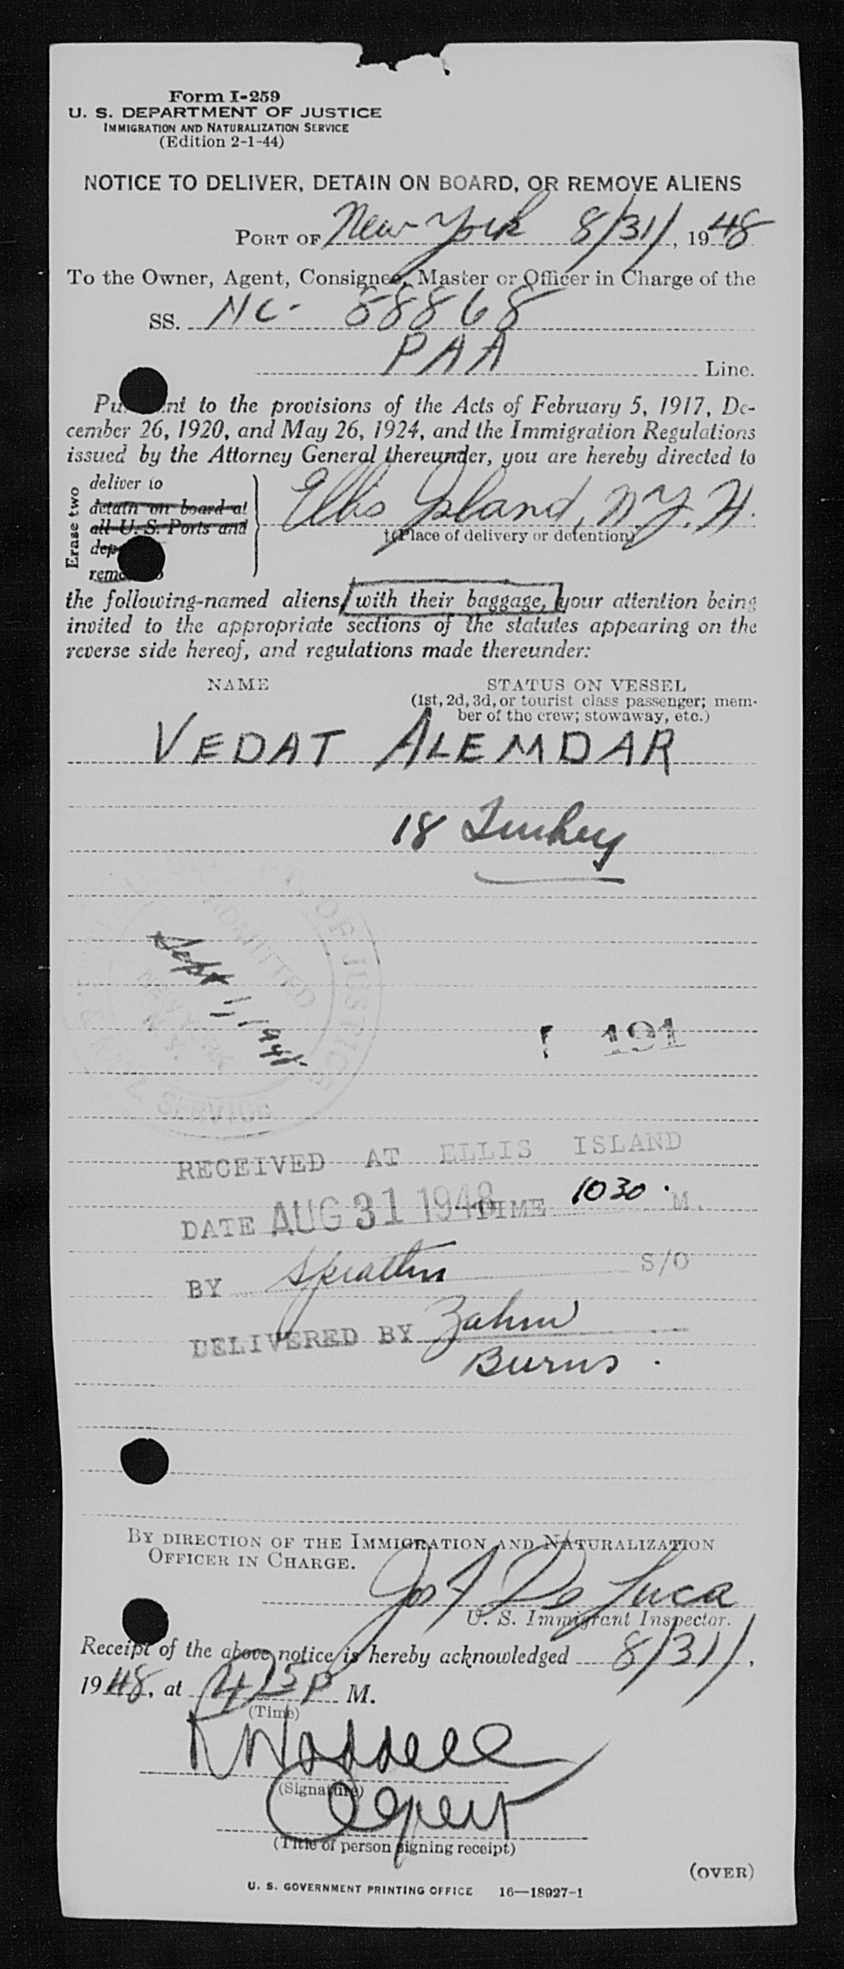 Form I-259
U. S. DEPARTMENT OF JUSTICE
IMMIGRATION AND NATURALIZATION SERVICE
(Edition 2-1-44)
NOTICE TO DELIVER, DETAIN ON BOARD, OR REMOVE ALIENS
PORT OF New York 8/31/, 1948
To the Owner, Agent, Consignee, Master or Officer in Charge of the
SS. NC- 88868
PAA Line.
Pu nt to the provisions of the Acts of February 5, 1917, De-
cember 26, 1920, and May 26, 1924, and the Immigration Regulations
issued by the Attorney General thereunder, you are hereby directed to
Erase two
deliver to
detain on board at
all U. S. Ports and
dep
remo o
Ellis Island, N.Y.H.
(Place of delivery or detention)
the following-named aliens, with their baggage, your attention being
invited to the appropriate sections of the statutes appearing on the
reverse side hereof, and regulations made thereunder:
NAME STATUS ON VESSEL
(1st, 2d, 3d, or tourist class passenger; mem-
ber of the crew; stowaway, etc.)
VEDAT ALEMDAR
18 Turkey
OF JUSTICE
ADMITTED
Sept 1, 1948
NEW YORK
N.Y.
SERVICE
191
RECEIVED AT ELLIS ISLAND
DATE AUG 31 1948 TIME 1030 M.
BY S/O
DELIVERED BY Zahm
Burns.
BY DIRECTION OF THE IMMIGRATION AND NATURALIZATION
OFFICER IN CHARGE.
Jos F De Luca
U. S. Immigrant Inspector.
Receipt of the above notice is hereby acknowledged 8/31/,
1948, at 415 P M.
(Time)
R Waddell
(Signature)
Agent
(Title of person signing receipt)
(OVER)
U. S. GOVERNMENT PRINTING OFFICE 16—18927-1